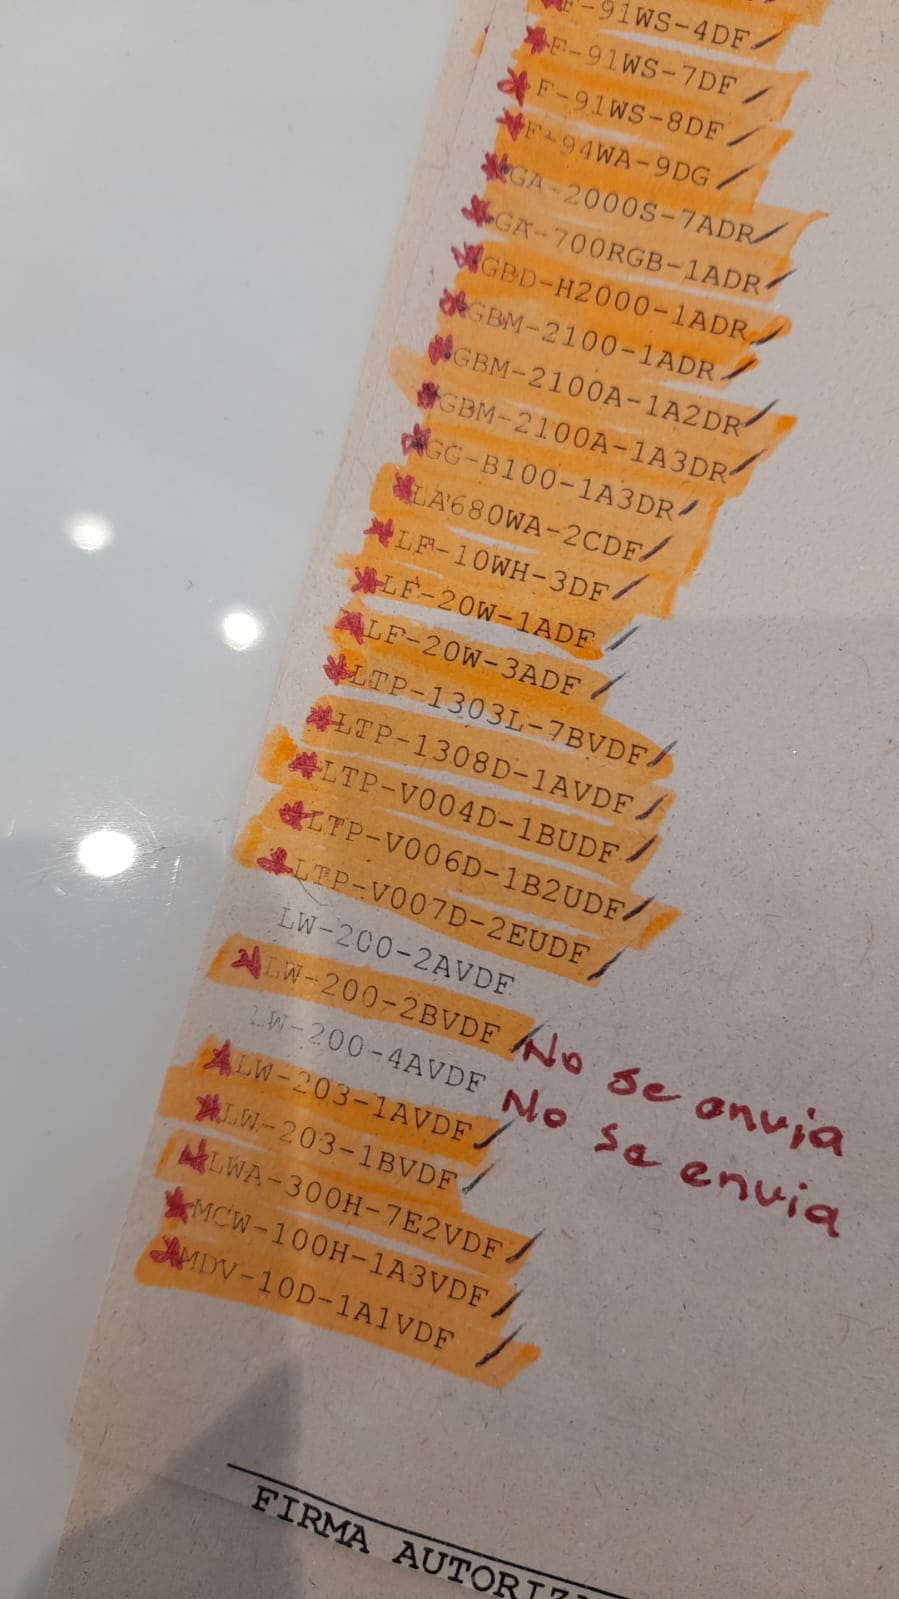 F-91WS-4DF
F-91WS-7DF
F-91WS-8DF
F-94WA-9DG
GA-2000S-7ADR
GA-700RGB-1ADR
GBD-H2000-1ADR
GBM-2100-1ADR
GBM-2100A-1A2DR
GBM-2100A-1A3DR
GG-B100-1A3DR
LA680WA-2CDF
LF-10WH-3DF
LF-20W-1ADF
LF-20W-3ADF
LTP-1303L-7BVDF
LTP-1308D-1AVDF
LTP-V004D-1BUDF
LTP-V006D-1B2UDF
LTP-V007D-2EUDF
LW-200-2AVDF No se envia
LW-200-2BVDF
LW-200-4AVDF No se envia
LW-203-1AVDF
LW-203-1BVDF
LWA-300H-7E2VDF
MCW-100H-1A3VDF
MDV-10D-1A1VDF
FIRMA